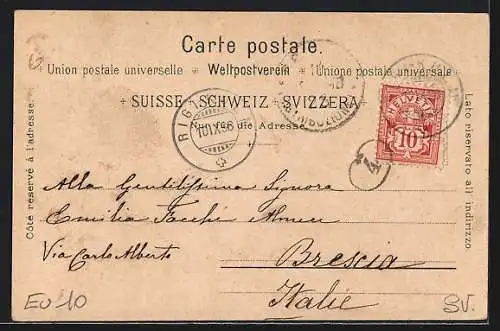 Carte postale.
Union postale universelle Weltpostverein Unione postale universale
SUISSE SCHWEIZ SVIZZERA
Nur für die Adresse.
Côté réservé à l'adresse.
Lato riservato all indirizzo
RIGI
10 IX
HELVETIA
10
Alla Gentilissima Signora
Emilia Facchi
Via Carlo Alberto
Brescia
Italie
EU 10
SV.